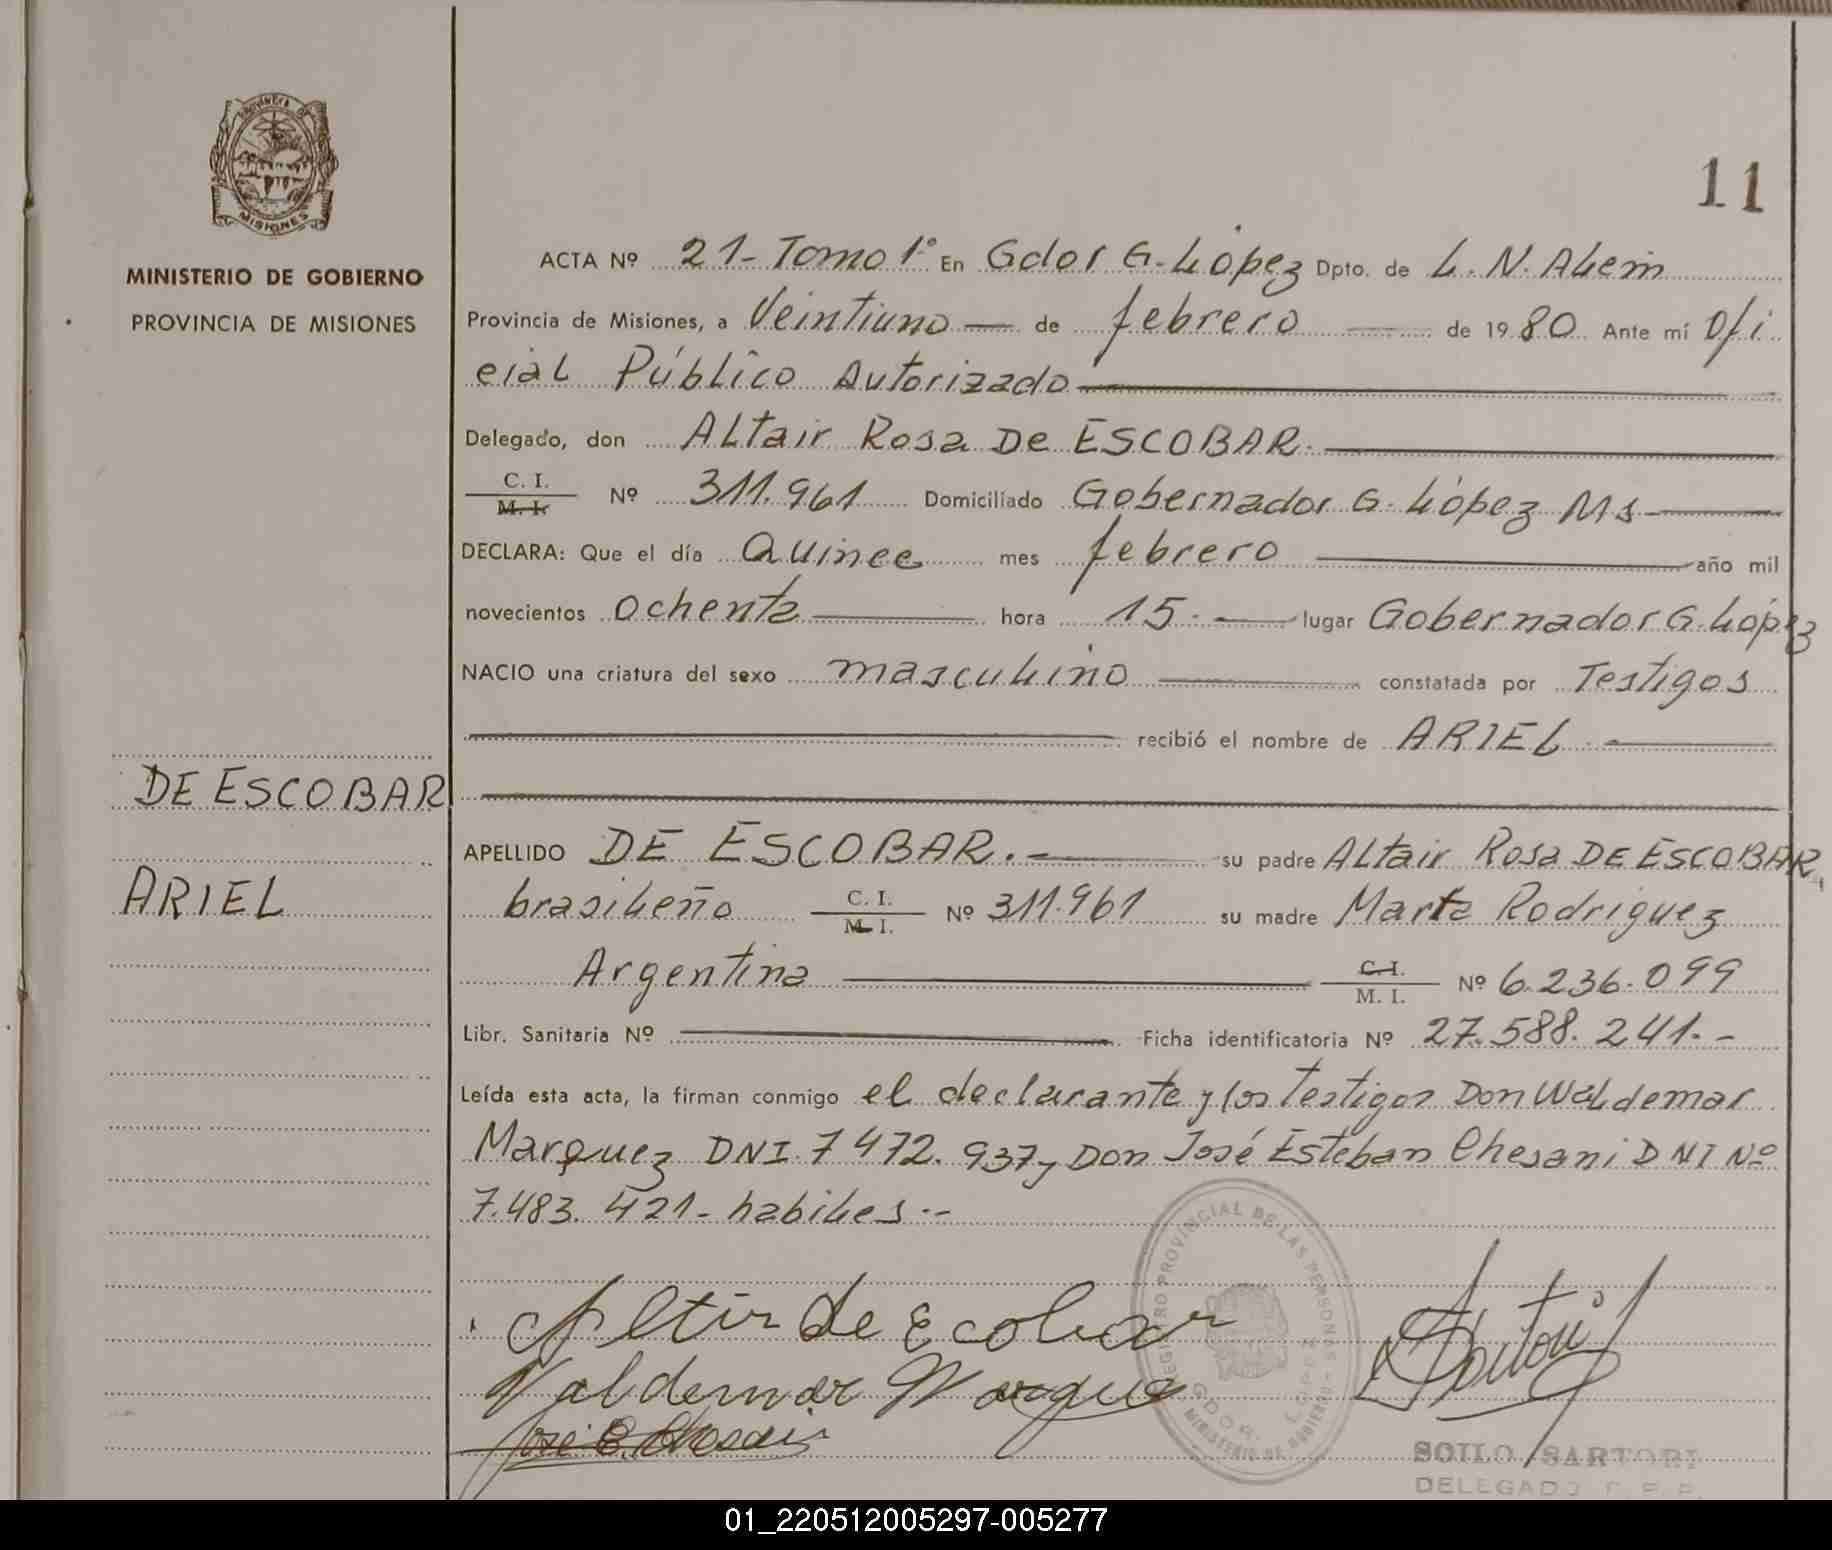 PROVINCIA DE
MISIONES
MINISTERIO DE GOBIERNO
PROVINCIA DE MISIONES
DE ESCOBAR
ARIEL
11
ACTA Nº 21- Tomo 1º En Gdor G. López Dpto. de L. N. Alem
Provincia de Misiones, a Veintiuno de febrero de 1980 Ante mí Ofi
cial Público Autorizado
Delegado, don Altair Rosa De ESCOBAR.
C. I.
M. I. Nº 311.961 Domiciliado Gobernador G. López Ms
DECLARA: Que el día Quince mes febrero año mil
novecientos ochenta hora 15. lugar Gobernador G. López
NACIO una criatura del sexo masculino constatada por Testigos
recibió el nombre de ARIEL
APELLIDO DE ESCOBAR.- su padre Altair Rosa DE ESCOBAR
brasileño C. I. M. I. Nº 311.961 su madre Marta Rodriguez
Argentina C. I. M. I. Nº 6.236.099
Libr. Sanitaria Nº Ficha identificatoria Nº 27.588.241.-
Leída esta acta, la firman conmigo el declarante y los Testigos Don Waldemar
Marquez DNI 7472.937 y Don José Esteban Chesani DNI Nº
7.483.421- habiles.-
Altir de Escobar
Valdemar Marque
José E. Chesani
REGISTRO PROVINCIAL DE LAS PERSONAS
GDOR. LOPEZ
MINISTERIO DE GOBIERNO
SOILO SARTORI
DELEGADO
01_220512005297-005277